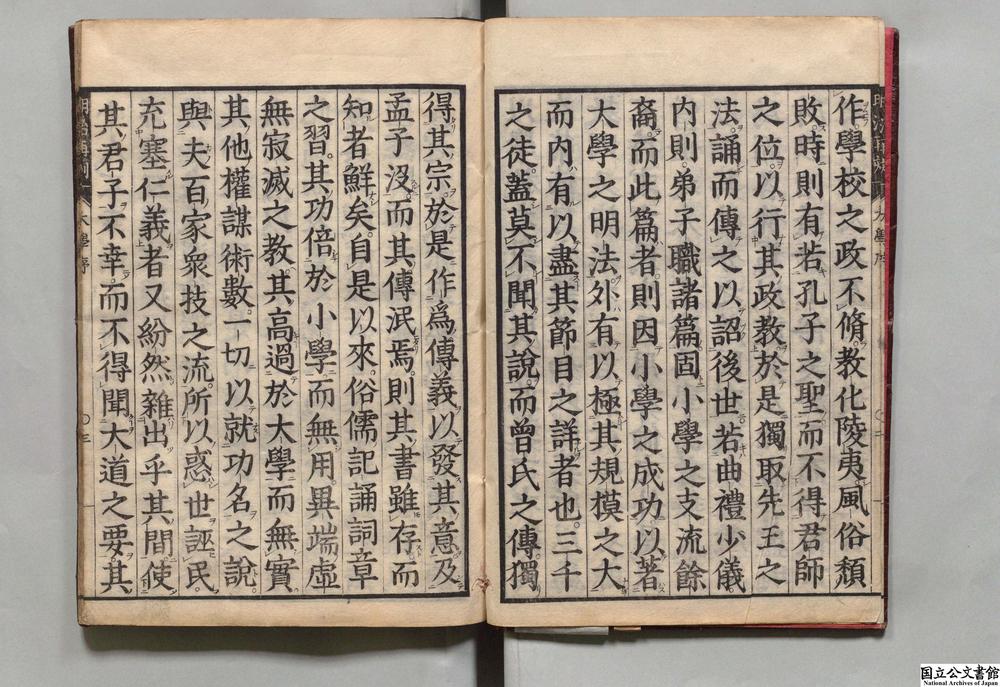 作學校之政不脩教化陵夷風俗頽
敗時則有若孔子之聖而不得君師
之位以行其政教於是獨取先王之
法誦而傳之以詔後世若曲禮少儀
内則弟子職諸篇固小學之支流餘
裔而此篇者則因小學之成功以著
大學之明法外有以極其規模之大
而内有以盡其節目之詳者也三千
之徒蓋莫不聞其說而曾氏之傳獨
得其宗於是作爲傳義以發其意及
孟子沒而其傳泯焉則其書雖存而
知者鮮矣自是以來俗儒記誦詞章
之習其功倍於小學而無用異端虛
無寂滅之教其高過於大學而無實
其他權謀術數一切以就功名之說
與夫百家衆技之流所以惑世誣民
充塞仁義者又紛然雜出乎其間使
其君子不幸而不得聞大道之要其
大學序
三
国立公文書館
National Archives of Japan